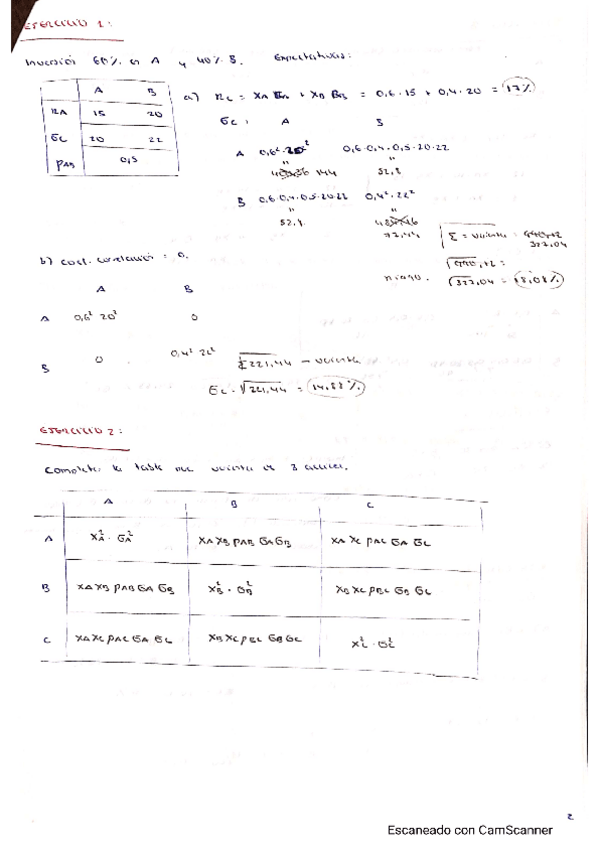 EJERCICIO 1:
Inversión 60% en A y 40% B. Expectativas:
A B
RA 15 20
σC 20 22
ρAB 0,5
a) RC = XA RA + XB RB = 0,6·15 + 0,4·20 = 17%
σC: A B
A 0,6²·20² 0,6·0,4·0,5·20·22
" "
144 52,8
B 0,6·0,4·0,5·20·22 0,4²·22²
" "
52,8 77,44
Σ = varianza =
327,04
riesgo. √327,04 = 18,08%
b) Coef. correlación = 0.
A B
A 0,6² 20² 0
B 0 0,4² 22²
Σ 221,44 → varianza
σC = √221,44 = 14,88%
EJERCICIO 2:
Completar la tabla 3 acciones.
A B C
A X²A · σ²A XA XB ρAB σA σB XA XC ρAC σA σC
B XA XB ρAB σA σB X²B · σ²B XB XC ρBC σB σC
C XA XC ρAC σA σC XB XC ρBC σB σC X²C · σ²C
2
Escaneado con CamScanner